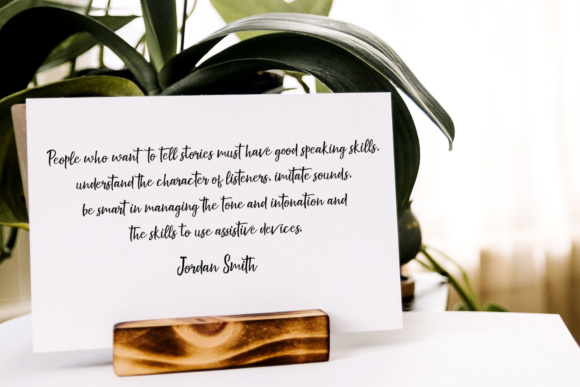 People who want to tell stories must have good speaking skills,
understand the character of listeners, imitate sounds,
be smart in managing the tone and intonation and
the skills to use assistive devices.
Jordan Smith